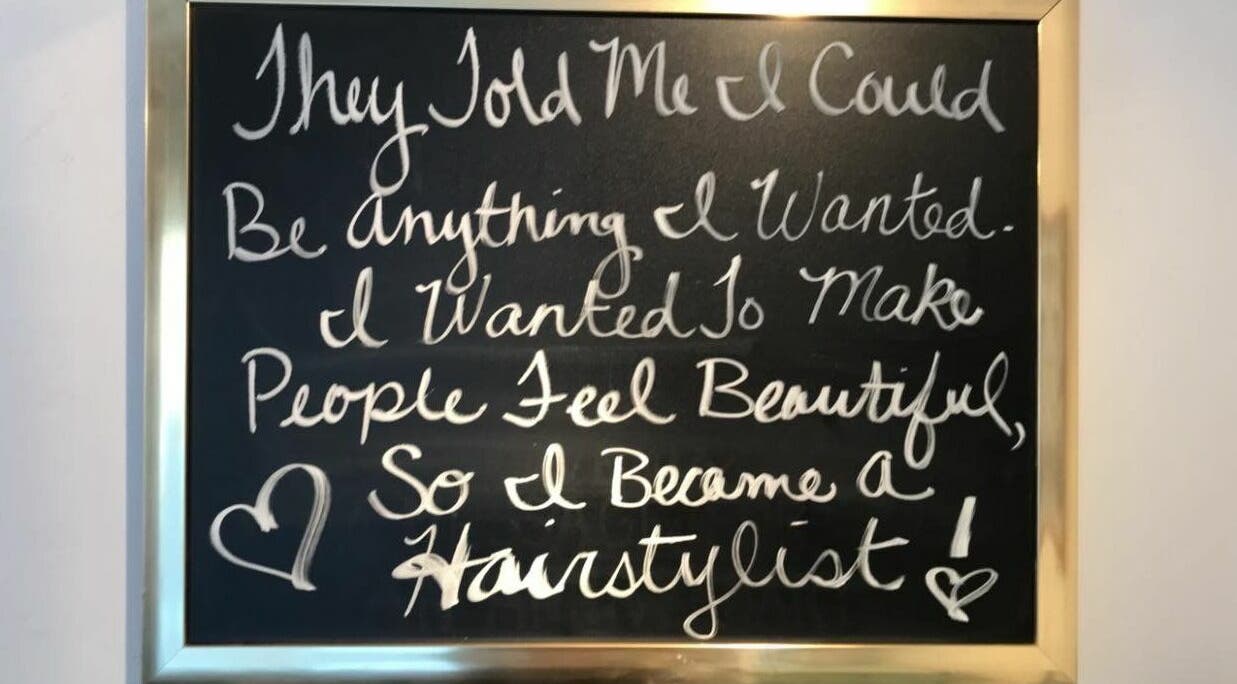 They Told Me I Could
Be Anything I Wanted.
I Wanted To Make
People Feel Beautiful,
So I Became A
Hairstylist!